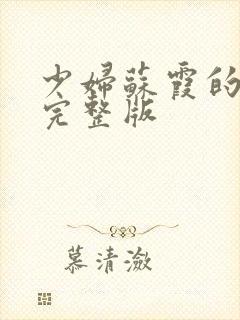 少婦蘇霞的
完整版
慕清瀲